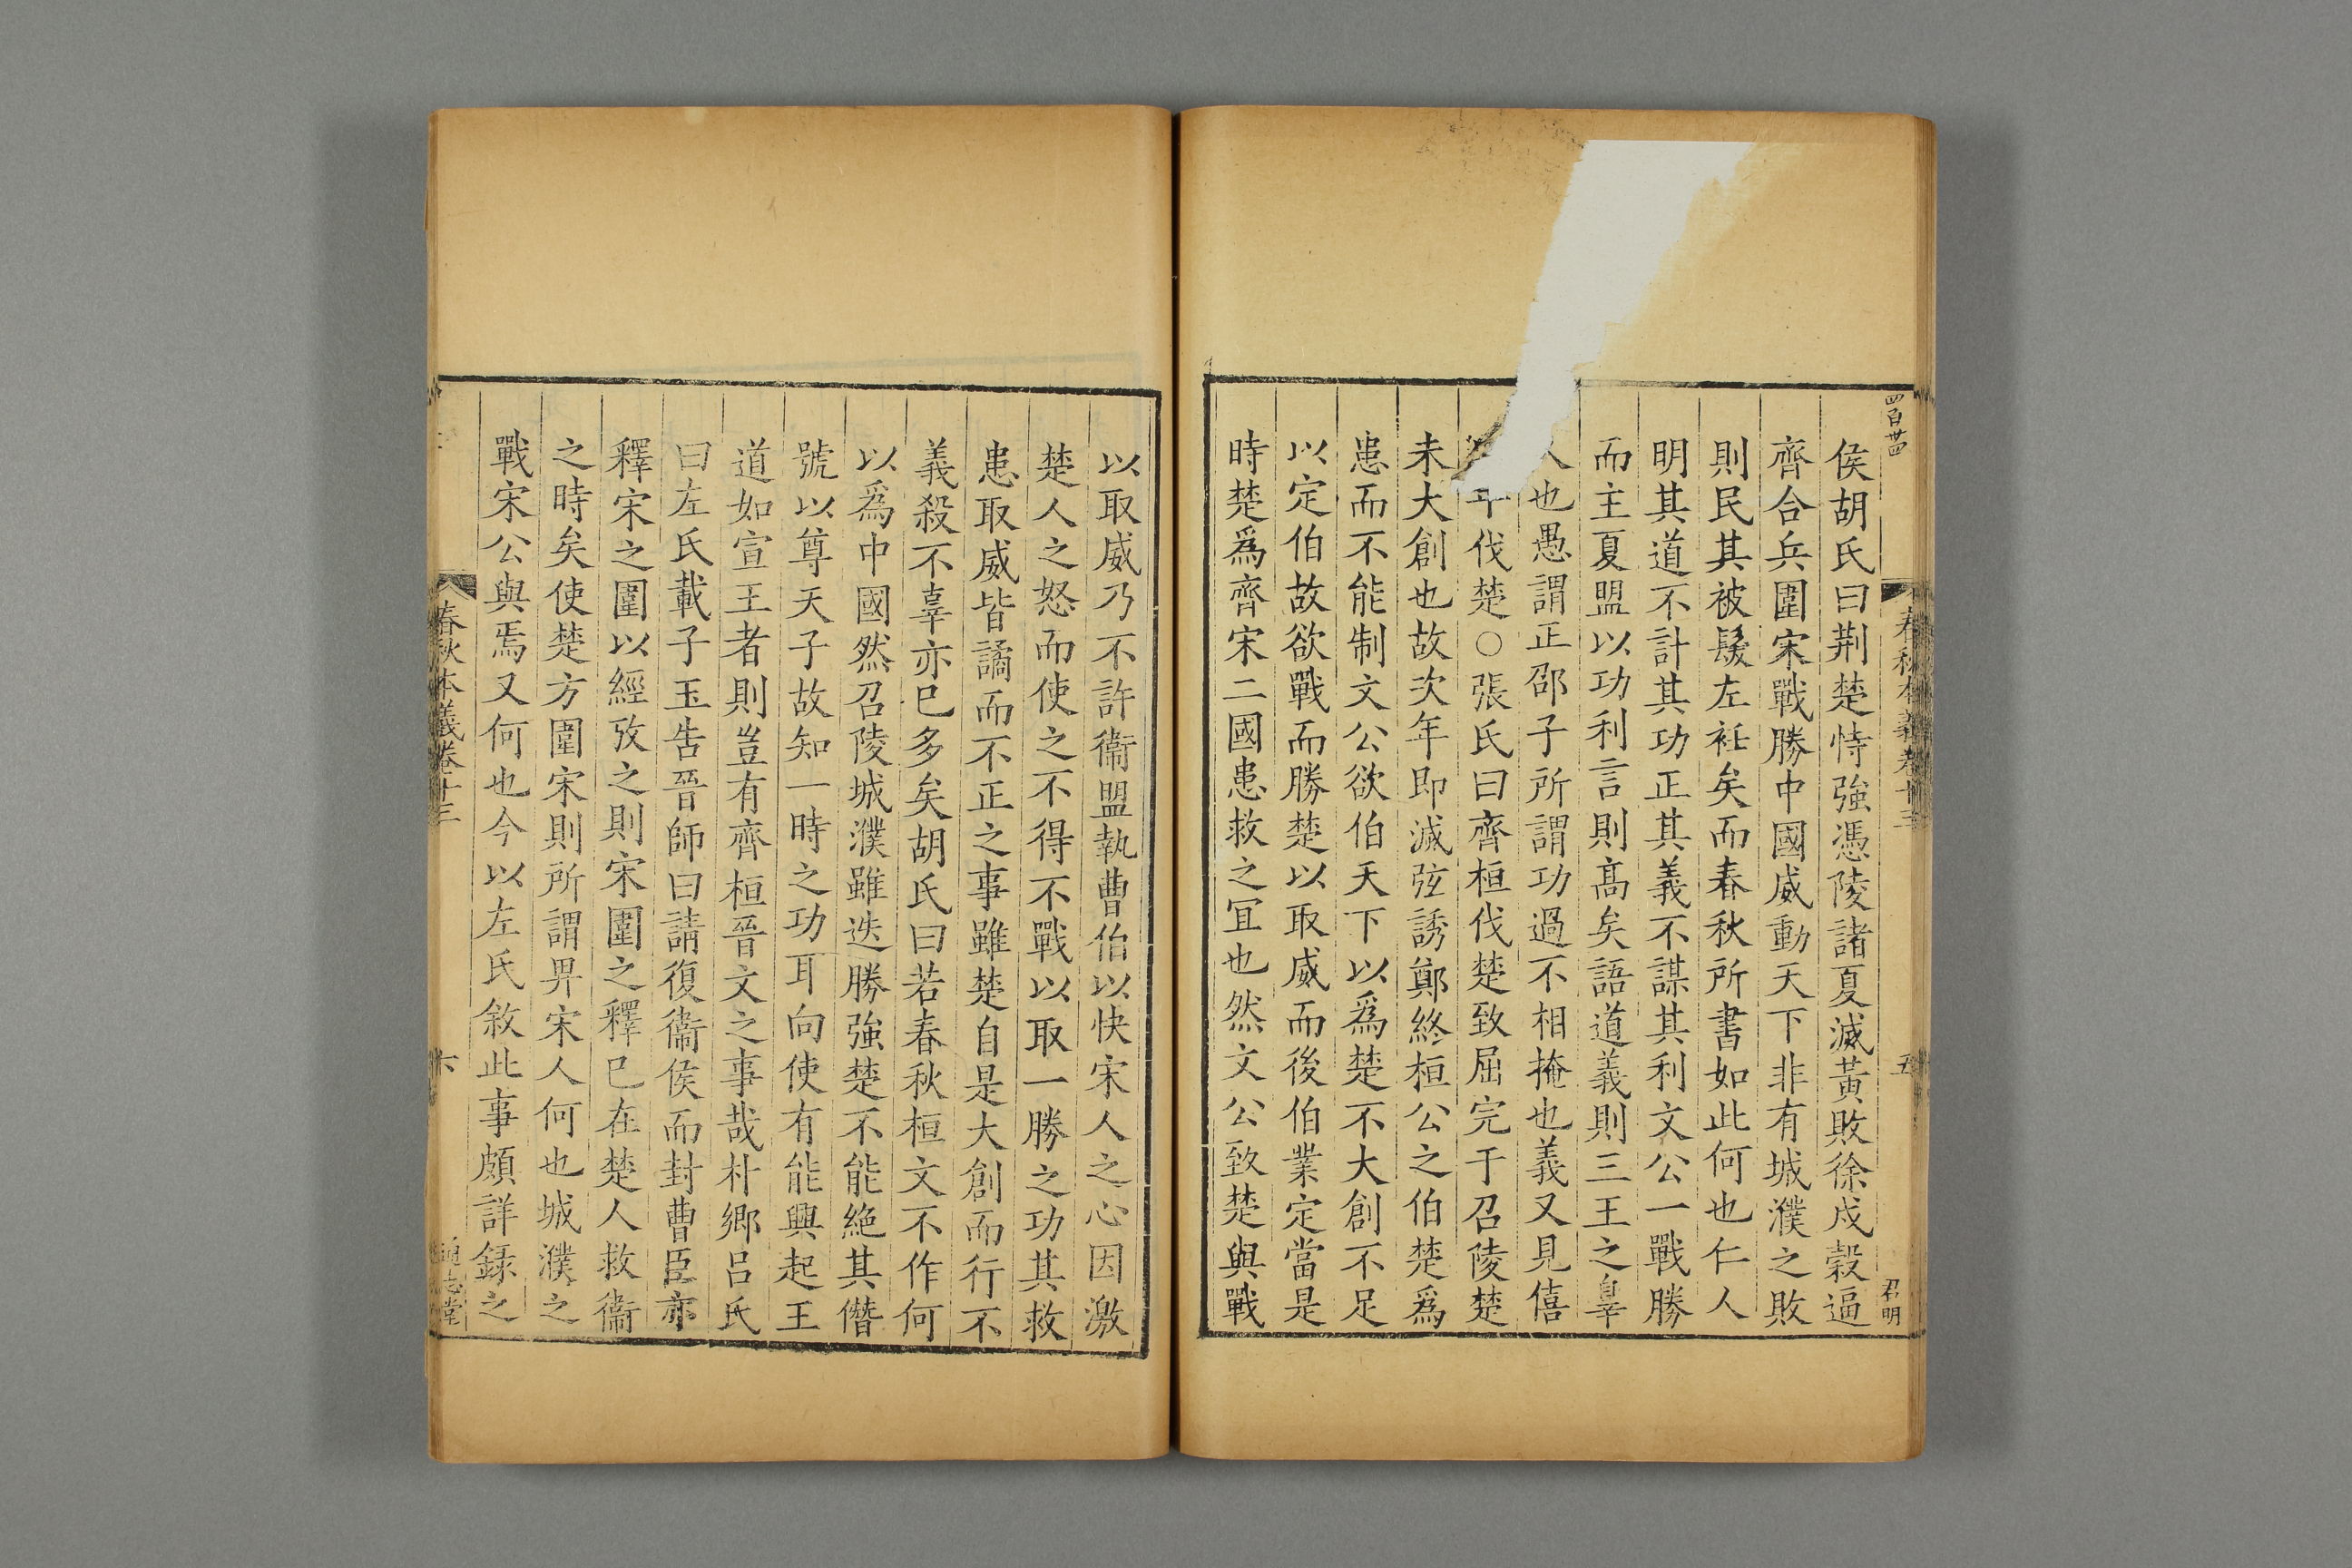 四百卌四
春秋本義卷十三
五
君明
侯胡氏曰荆楚恃強憑陵諸夏滅黃敗徐戍穀逼
齊合兵圍宋戰勝中國威動天下非有城濮之敗
則民其被髮左衽矣而春秋所書如此何也仁人
明其道不計其功正其義不謀其利文公一戰勝
而主夏盟以功利言則髙矣語道義則三王之辠
人也愚謂正邵子所謂功過不相掩也義又見僖
年伐楚○張氏曰齊桓伐楚致屈完于召陵楚
未大創也故次年即滅弦誘鄭終桓公之伯楚爲
患而不能制文公欲伯天下以爲楚不大創不足
以定伯故欲戰而勝楚以取威而後伯業定當是
時楚爲齊宋二國患救之冝也然文公致楚與戰
以取威乃不許衞盟執曹伯以快宋人之心因激
楚人之怒而使之不得不戰以取一勝之功其救
患取威皆譎而不正之事雖楚自是大創而行不
義殺不辜亦巳多矣胡氏曰若春秋桓文不作何
以爲中國然召陵城濮雖迭勝強楚不能絶其僭
號以尊天子故知一時之功耳向使有能興起王
道如宣王者則豈有齊桓晉文之事哉朴鄉吕氏
曰左氏載子玉告晉師曰請復衞侯而封曹臣亦
釋宋之圍以經攷之則宋圍之釋巳在楚人救衞
之時矣使楚方圍宋則所謂畀宋人何也城濮之
戰宋公與焉又何也今以左氏敘此事頗詳録之
春秋本義卷十三
六
通志堂